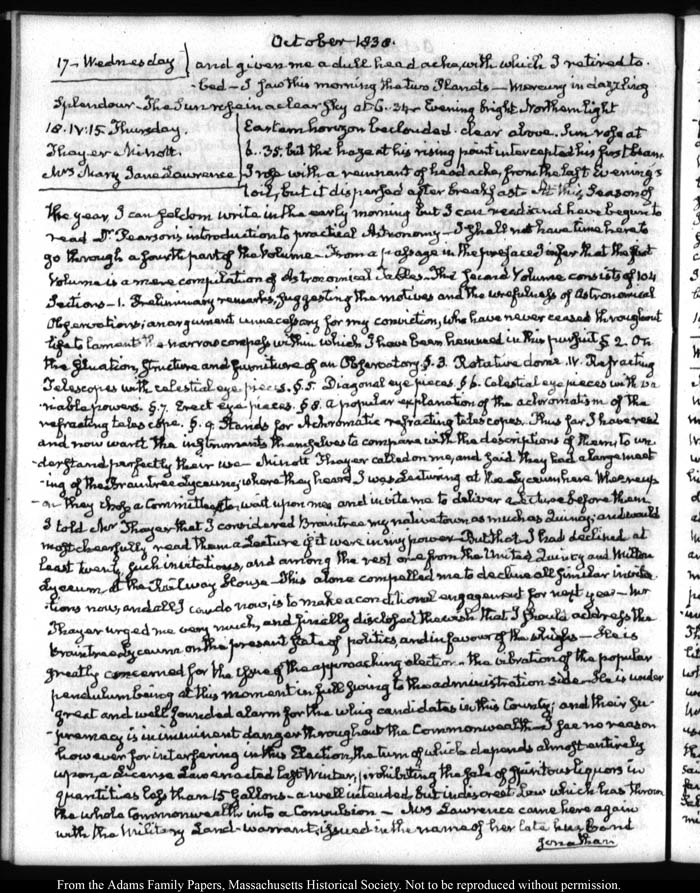 October 1838.
17 - Wednesday } and given me a dull head ache, with which I retired to
bed - I saw this morning the two Planets - Mercury in dazzling
splendour - The Sun rose in a clear sky at 6. 34 - Evening bright Northern light
18. IV:15 Thursday.
Thayer Minott.
Mrs Mary Jane Lawrence
Eastern horizon beclouded. clear above. Sun rose at
6..35. but the haze at his rising point intercepted his first beam
I rose with a remnant of head ache, from the last evening's
toil, but it dispersed after breakfast - At this season of
the year, I can seldom write in the early morning but I can read and have begun to
read Dr. Pearson's introduction to practical Astronomy - I shall not have time here to
go through a fourth part of the Volume - From a passage in the preface I infer that the first
Volume is a mere compilation of Astronomical Tables - The second Volume consists of 104
Sections - 1. Preliminary remarks, suggesting the motives and the usefulness of Astronomical
Observations; an argument unnecessary for my conviction, who have never ceased throughout
life to lament the narrow compass within which I have been hemmed in this pursuit § 2. On
the situation, structure and furniture of an Observatory. §. 3. Rotative dome. IV. Refracting
Telescopes with celestial eye pieces. § 5. Diagonal eye pieces. § 6. Celestial eye pieces with va
-riable powers. §. 7. Erect eye pieces. § 8. a popular explanation of the achromatism of the
refracting telescope. §. 9. Stands for Achromatic refracting telescopes. Thus far I have read
and now want the instruments themselves to compare with the descriptions of them, to un
-derstand perfectly their use - Minott Thayer called on me, and said they had a large meet
-ing of the Braintree Lyceum, where they heard I was Lecturing at the Lyceum here Whereup
-on they chose a Committee to wait upon me and invite me to deliver a Lecture before them
I told Mr Thayer that I considered Braintree my native town as much as Quincy; and would
most cheerfully read them a Lecture if it were in my power - But that I had declined at
least twenty such invitations, and among the rest one from the United Quincy and Milton
Lyceum, at the Railway House - This alone compelled me to decline all similar invita
-tions now, and all I can do now, is to make a conditional engagement for next year - Mr
Thayer urged me very much, and finally disclosed the wish that I should address the
Braintree Lyceum on the present state of politics and in favour of the whigs - He is
greatly concerned for the issue of the approaching election - the vibration of the popular
pendulum being at this moment in full swing to the administration side - He is under
great and well founded alarm for the whig candidates in this County; and their su-
-premacy is in imminent danger throughout the Commonwealth - I see no reason
however for interfering in this Election, the turn of which depends almost entirely
upon, a License Law enacted last Winter, prohibiting the sale of spirituous liquors in
quantities less than 15 Gallons - a well intended but indiscreet Law which has thrown
the whole Commonwealth into a Convulsion - Mrs Lawrence came here again
with the Military Land-warrant, issued in the name of her late husband
Jonathan
From the Adams Family Papers, Massachusetts Historical Society. Not to be reproduced without permission.